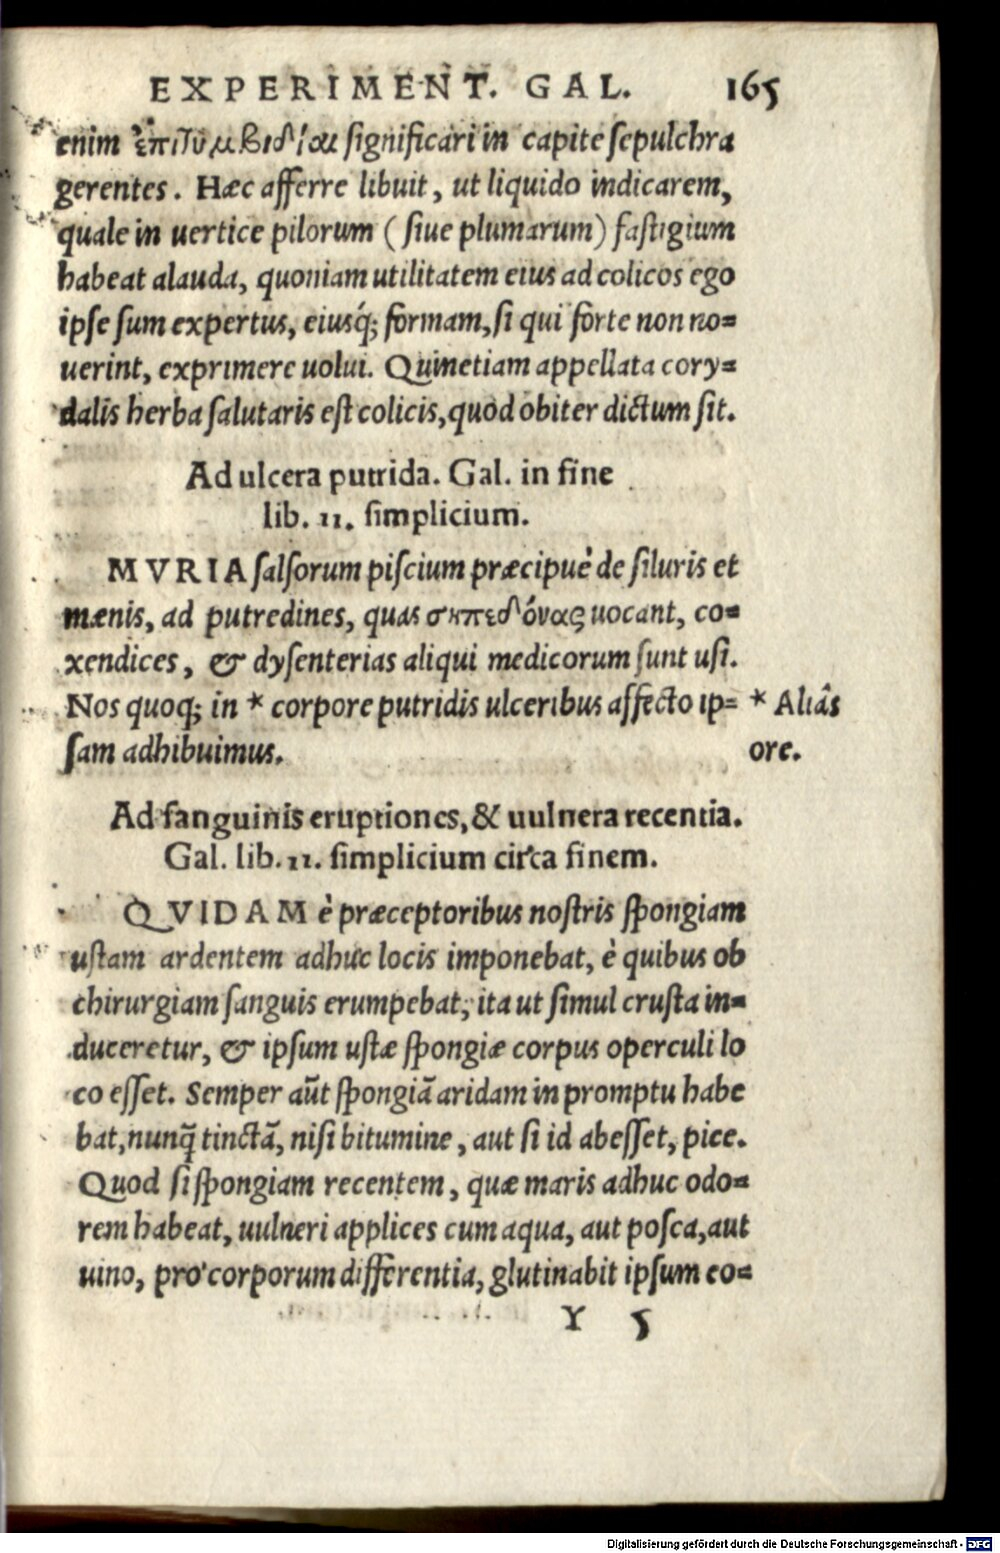 EXPERIMENT. GAL. 165
enim ἐπιτυμβίδιαι significari in capite sepulchra
gerentes. Hæc afferre libuit, ut liquido indicarem,
quale in uertice pilorum (siue plumarum) fastigium
habeat alauda, quoniam utilitatem eius ad colicos ego
ipse sum expertus, eiusq́; formam, si qui forte non no=
uerint, exprimere uolui. Quinetiam appellata cory=
dalis herba salutaris est colicis, quod obiter dictum sit.
Ad ulcera putrida. Gal. in fine
lib. 11. simplicium.
MVRIA salsorum piscium præcipuè de siluris et
mænis, ad putredines, quas σηπεδόνας uocant, co=
xendices, & dysenterias aliqui medicorum sunt usi.
Nos quoq; in * corpore putridis ulceribus affecto ip= * Aliâs
sam adhibuimus. ore.
Ad sanguinis eruptiones, & uulnera recentia.
Gal. lib. 11. simplicium circa finem.
QVIDAM è præceptoribus nostris spongiam
ustam ardentem adhuc locis imponebat, è quibus ob
chirurgiam sanguis erumpebat, ita ut simul crusta in=
duceretur, & ipsum ustæ spongiæ corpus operculi lo
co esset. Semper aũt spongiã aridam in promptu habe
bat, nunq̃ tinctã, nisi bitumine, aut si id abesset, pice.
Quod si spongiam recentem, quæ maris adhuc odo=
rem habeat, uulneri applices cum aqua, aut posca, aut
uino, pro corporum differentia, glutinabit ipsum eo=
Y 5
Digitalisierung gefördert durch die Deutsche Forschungsgemeinschaft - DFG